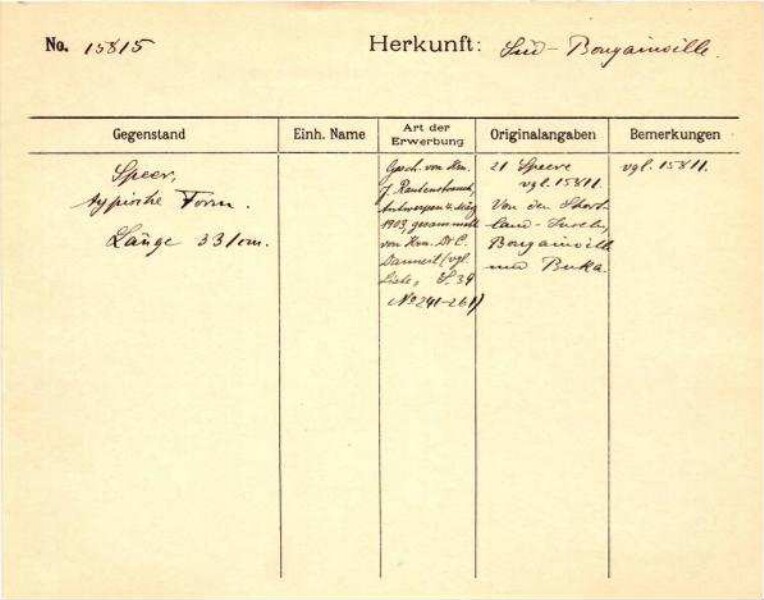 No. 15815
Herkunft: Süd-Bougainville.
Gegenstand
Einh. Name
Art der
Erwerbung
Originalangaben
Bemerkungen
Speer,
typische Form.
Länge 331cm.
Gesch. von Hrn.
J. Rautenstrauch,
Antwerpen 4. März
1903, gesammelt
von Hrn. Dr. C.
Dannert (vgl.
Liste, S. 39
No 241-261)
21 Speere
vgl. 15811.
Von den Short-
land-Inseln,
Bougainville
und Buka.
vgl. 15811.